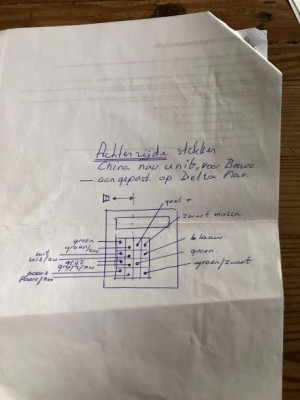 Achterzijde stekker
China nav. unit, voor Bravo
— aangepast op Delta Plan.
geel +
zwart massa
groen
groen/zw
blauw
wit
wit/zw
groen
grijs
grijs/zw
groen/zwart
paars
paars/zw